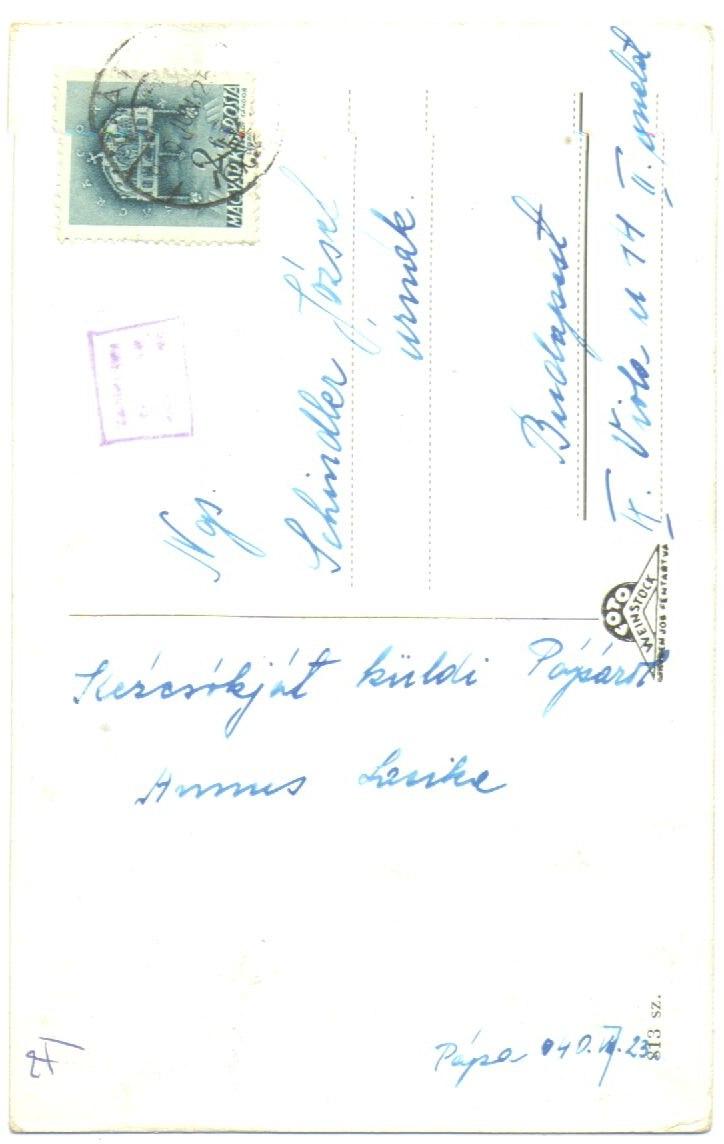 Kézcsókját küldi Pápáról
Annus Lacika
Pápa 940. 23.
Ngs.
Schindler József
úrnak.
Budapest
Viola u 14 II. emelet
MAGYAR KIR. POSTA
FOTO
WEINSTOCK
MINDEN JOG FENTARTVA
813 sz.